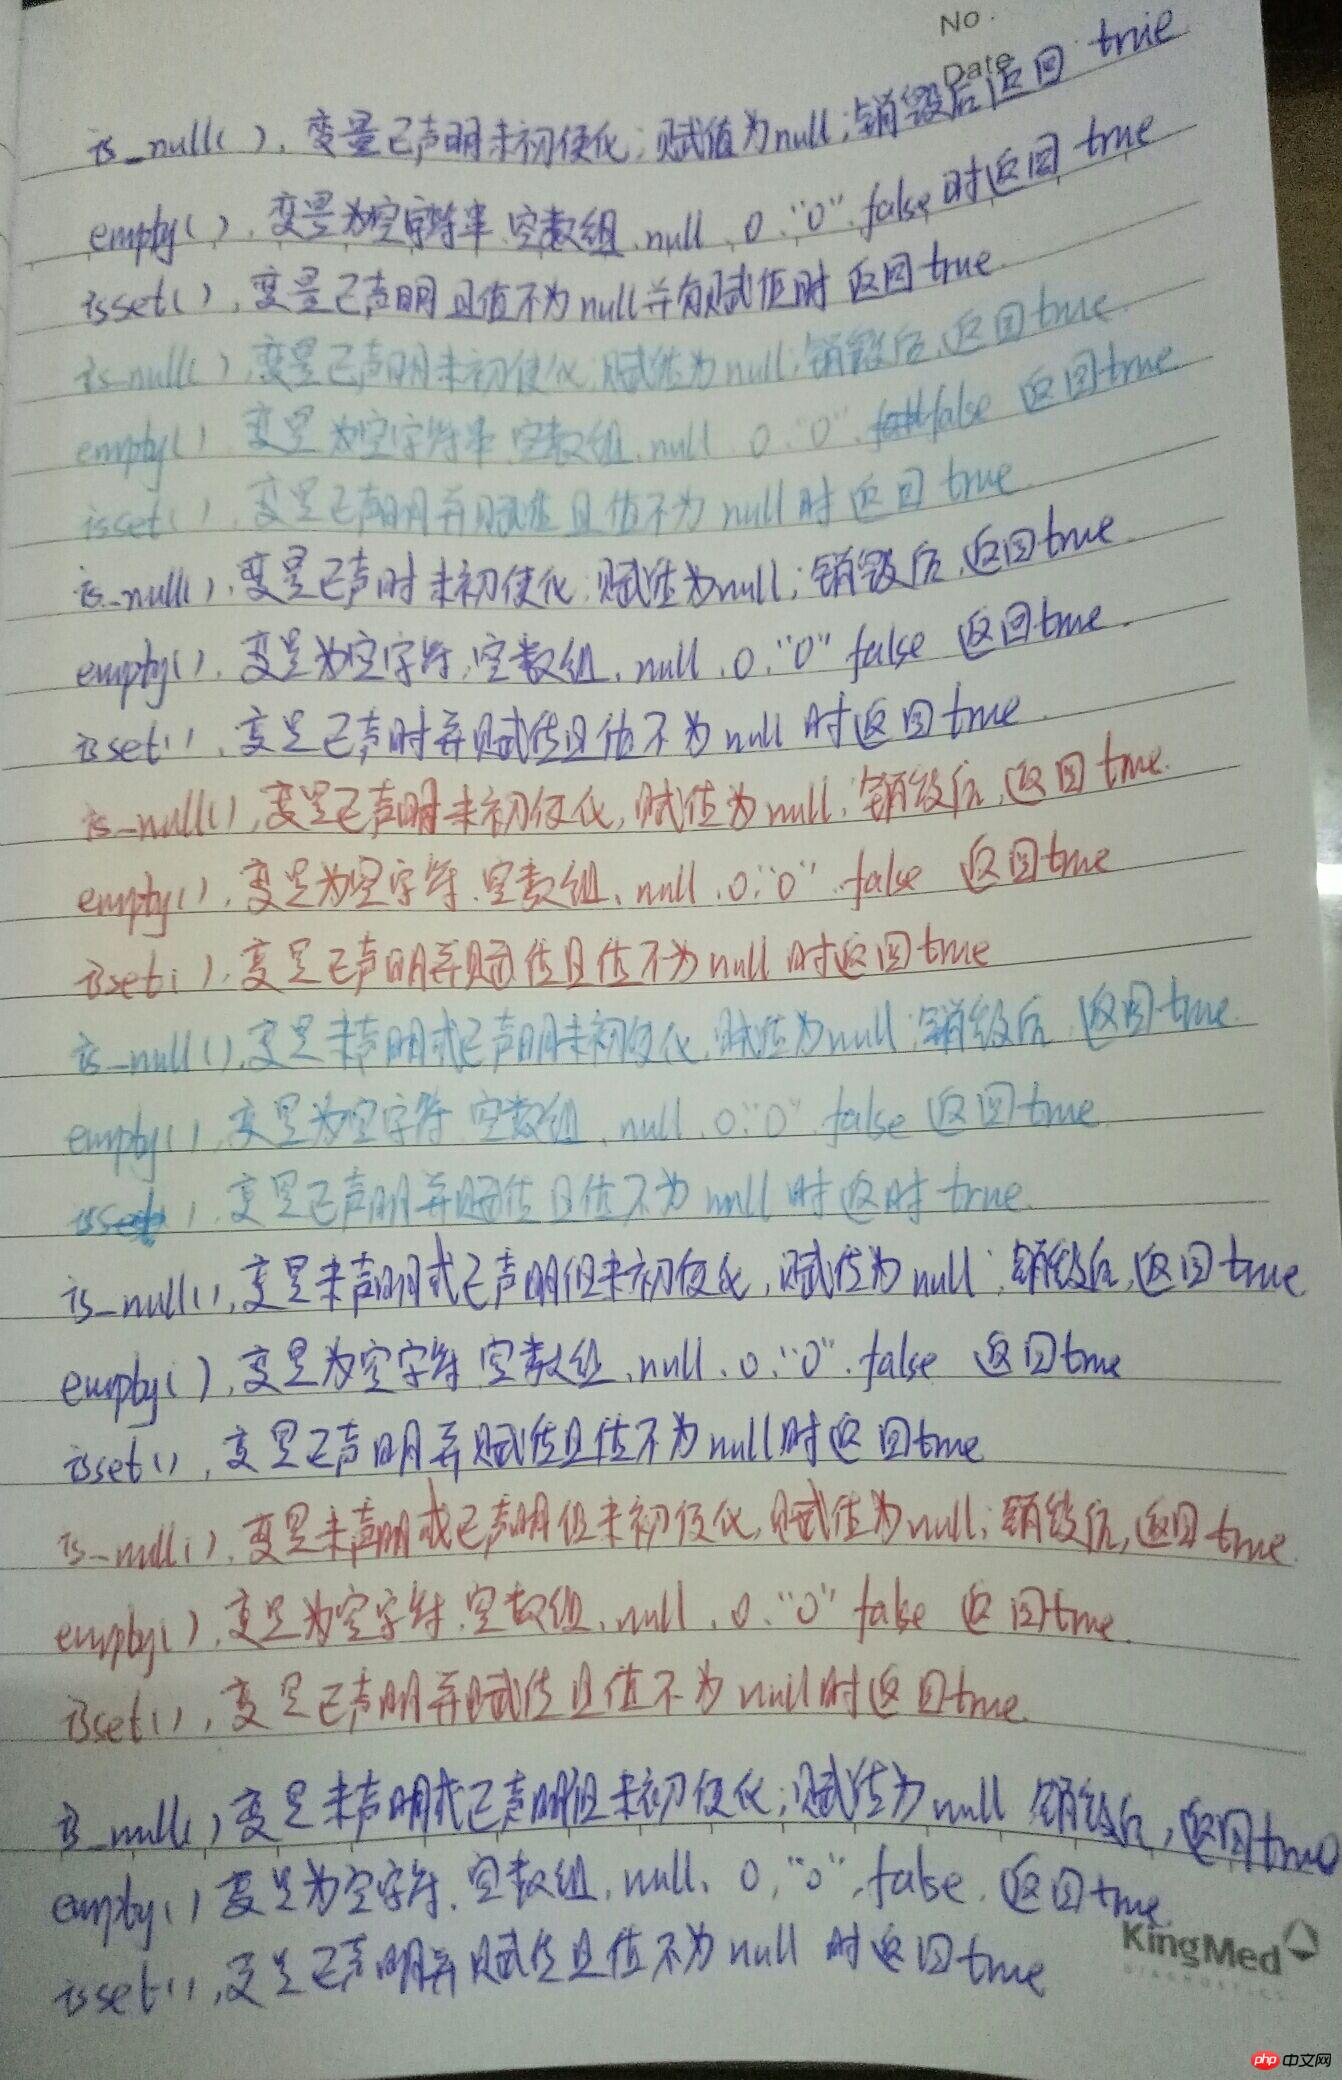 No.
Date
is_null(), 变量已声明未初使化; 赋值为null; 销毁后返回 true
empty(), 变量为空字符串、空数组、null、0、"0"、false时返回 true
isset(), 变量已声明且值不为null并有赋值时 返回true
is_null(), 变量已声明未初使化; 赋值为null; 销毁后, 返回true
empty(), 变量为空字符串、空数组、null、0、"0"、false 返回true
isset(), 变量已声明并赋值且值不为 null 时返回 true
is_null(), 变量已声时未初使化; 赋值为null; 销毁后, 返回true
empty(), 变量为空字符、空数组、null、0、"0" false 返回true.
isset(), 变量已声时并赋值且值不为 null 时返回true
is_null(), 变量已声明未初使化, 赋值为null, 销毁后, 返回 true.
empty(), 变量为空字符、空数组、null、0、"0"、false 返回true
isset(), 变量已声明并赋值且值不为null 时返回true
is_null(), 变量未声明或已声明未初使化, 赋值为null; 销毁后, 返回true.
empty(), 变量为空字符 空数组、null、0、"0"、false 返回true
isset(), 变量已声明并赋值且值不为 null 时返时 true.
is_null(), 变量未声明或已声明但未初使化, 赋值为 null; 销毁后, 返回true
empty(), 变量为空字符 空数组、null、0、"0"、false 返回true
isset(), 变量已声明并赋值且值不为null时返回true
is_null(), 变量未声明或已声明但未初使化, 赋值为null; 销毁后, 返回true.
empty(), 变量为空字符、空数组、null、0、"0" false 返回true.
isset(), 变量已声明并赋值且值不为 null时返回true.
is_null(), 变量未声明或已声明但未初使化; 赋值为 null 销毁后, 返回true
empty() 变量为空字符、空数组、null、0、"0"、false、返回true.
isset(), 变量已声明并赋值且值不为 null 时返回true
KingMed
DIAGNOSTICS
php 中文网